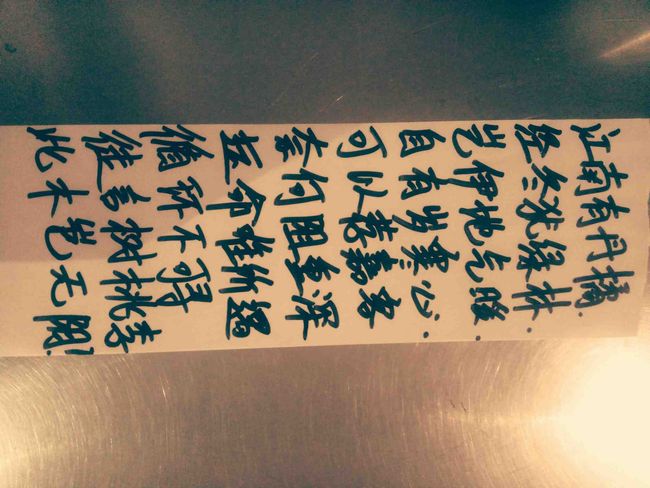 江南有丹橘.
经冬犹绿林.
岂伊地气暖.
自有岁寒心.
可以荐嘉客
奈何阻重深
运命唯所遇
循环不可寻
徒言树桃李
此木岂无阴!